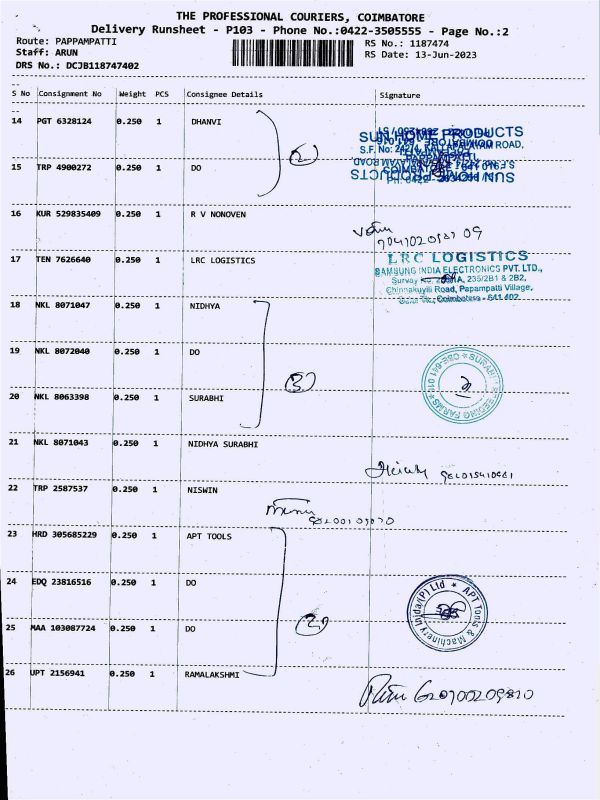 THE PROFESSIONAL COURIERS, COIMBATORE
Delivery Runsheet - P103 - Phone No.:0422-3505555 - Page No.:2
Route: PAPPAMPATTI RS No.: 1187474
Staff: ARUN RS Date: 13-Jun-2023
DRS No.: DCJB118747402
S No Consignment No Weight PCS Consignee Details Signature
14 PGT 6328124 0.250 1 DHANVI
SUN HOME PRODUCTS
15 TRP 4900272 0.250 1 DO
16 KUR 529835409 0.250 1 R V NONOVEN
17 TEN 7626640 0.250 1 LRC LOGISTICS
LRC LOGISTICS
SAMSUNG INDIA ELECTRONICS PVT. LTD.,
235/2B1 & 2B2,
Chinnakuyili Road, Papampatti Village,
Coimbatore - 641 402
18 NKL 8071047 0.250 1 NIDHYA
19 NKL 8072040 0.250 1 DO
3
20 NKL 8063398 0.250 1 SURABHI
21 NKL 8071043 0.250 1 NIDHYA SURABHI
22 TRP 2587537 0.250 1 NISWIN
23 HRD 305685229 0.250 1 APT TOOLS
24 EDQ 23816516 0.250 1 DO
APT Tools & Machinery India (P) Ltd
25 MAA 103087724 0.250 1 DO
26 UPT 2156941 0.250 1 RAMALAKSHMI